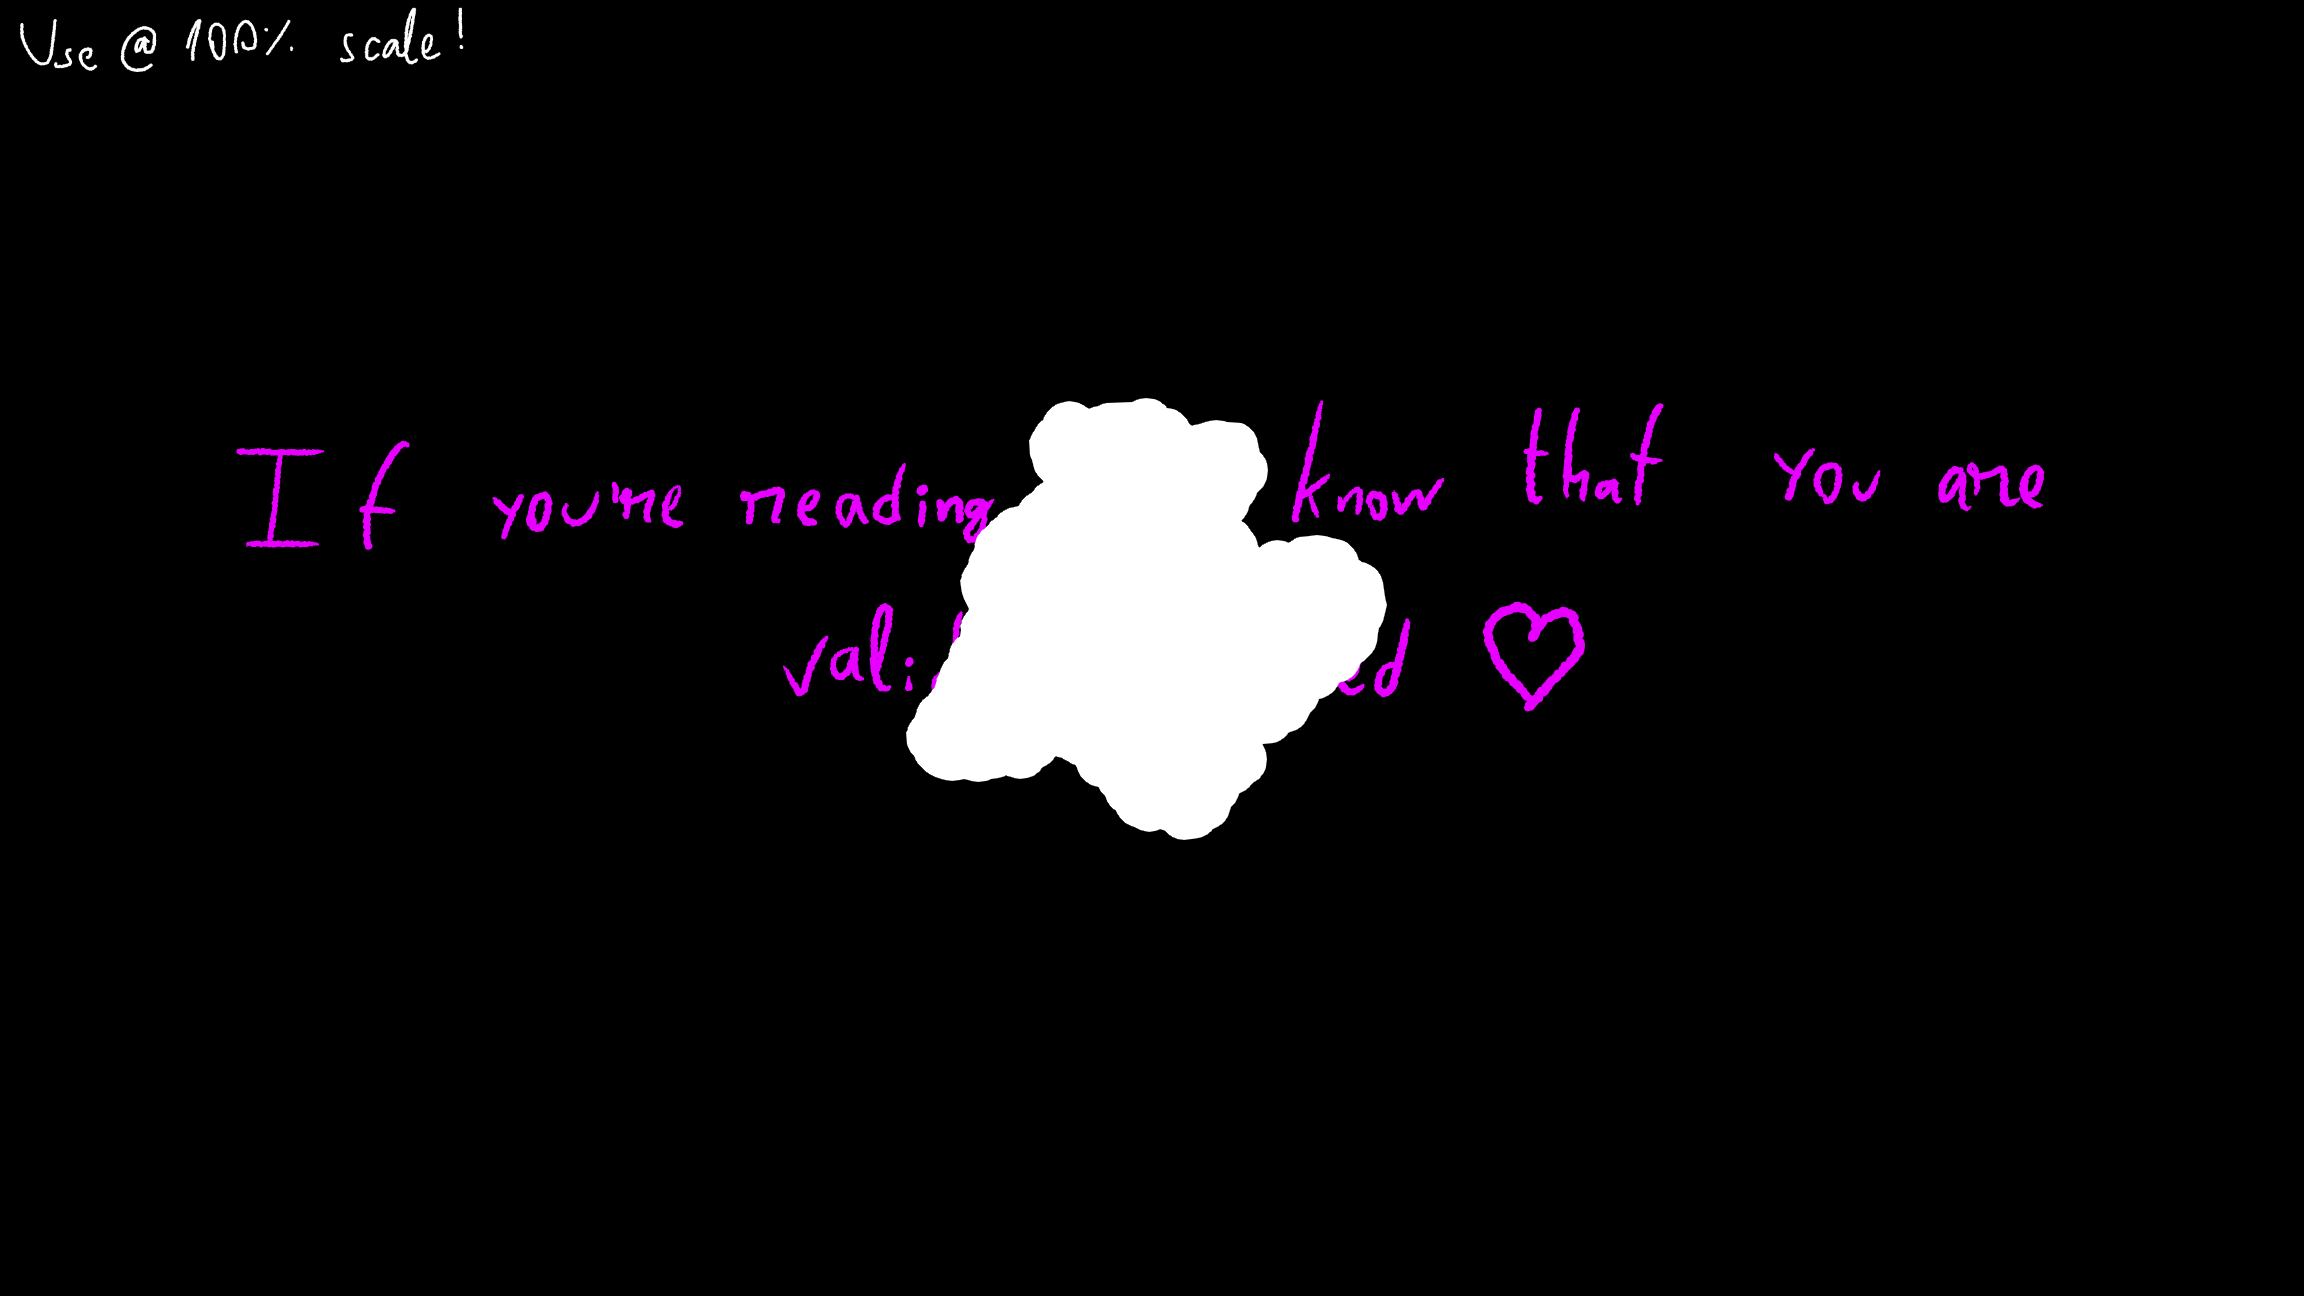 Use @ 100% scale!
If you're reading know that you are